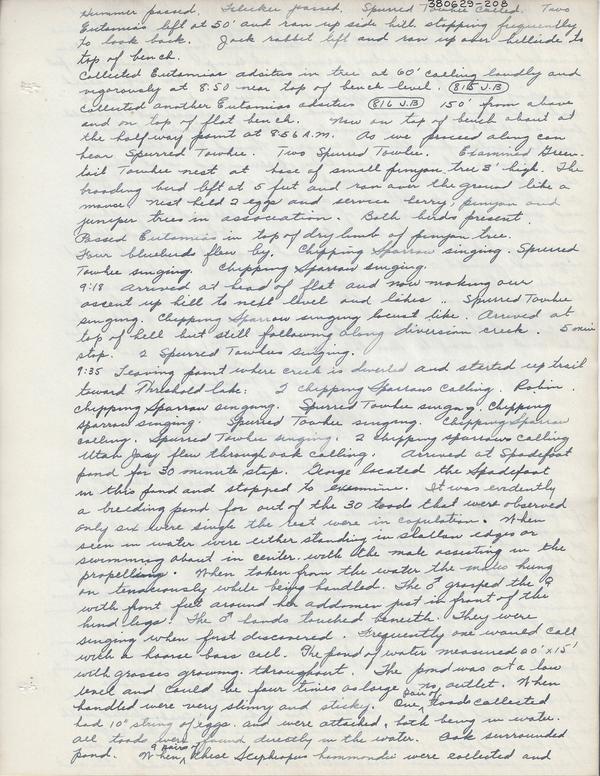 380629-208
Hummer passed. Flicker passed. Spurred Towhee called. Two
Eutamias left at 50' and ran up side hill stopping frequently
to look back. Jack rabbit left and ran up over hillside to
top of bench.
Collected Eutamias adsitus in tree at 60' calling loudly and
vigorously at 8:50 near top of bench level. (815 J.B)
Collected another Eutamias adsitus (816 J.B) 150' from above
and on top of flat bench. Now on top of bench about at
the halfway point at 8:56 A.M. As we proceed along can
hear Spurred Towhee. Two Spurred Towhee. Examined Green-
tail Towhee nest at base of small pinyon tree 3' high. The
brooding bird left at 5 feet and ran over the ground like a
mouse. Nest held 2 eggs and service berry, pinyon and
juniper trees in association. Both birds present.
Passed Eutamias in top of dry limb of pinyon tree.
Four bluebirds flew by. Chipping Sparrow singing. Spurred
Towhee singing. Chipping Sparrow singing.
9:18 arrived at head of flat and now making our
ascent up hill to next level and lakes .. Spurred Towhee
singing. Chipping Sparrow singing locust like. Arrived at
top of hill but still following along diversion creek. 5 min
stop. 2 Spurred Towhees singing.
9:35 Leaving point where creek is diverted and started up trail
toward Threshold lake: 2 Chipping Sparrows calling. Robin.
Chipping Sparrow singing. Spurred Towhee singing. Chipping
Sparrow singing. Spurred Towhee singing. Chipping Sparrow
calling. Spurred Towhee singing. 2 Chipping sparrows calling
Utah Jay flew through oak calling. Arrived at Spadefoot
pond for 30 minute stop. George located the Spadefoot
in this pond and stopped to examine. It was evidently
a breeding pond for out of the 30 toads that were observed
only six were single the rest were in copulation. When
seen in water were either standing in shallow edges or
swimming about in center with the male assisting in the
propelling. When taken from the water the males hung
on tenaciously while being handled. The ♂ grasped the ♀
with front feet around her abdomen just in front of the
hind legs. The ♂ hands touched beneath. They were
singing when first discovered. Frequently one would call
with a hoarse bass call. The pond of water measured 20' x 15'
with grasses growing throughout. The pond was at a low
level and could be four times as large. No outlet. When
handled were very slimy and sticky. One pair of toads collected
had 10" string of eggs. and were attached, both being in water.
all toads were found directly in the water. Oak surrounded
pond. When 9 pairs of these Scaphiopus hammondii were collected and